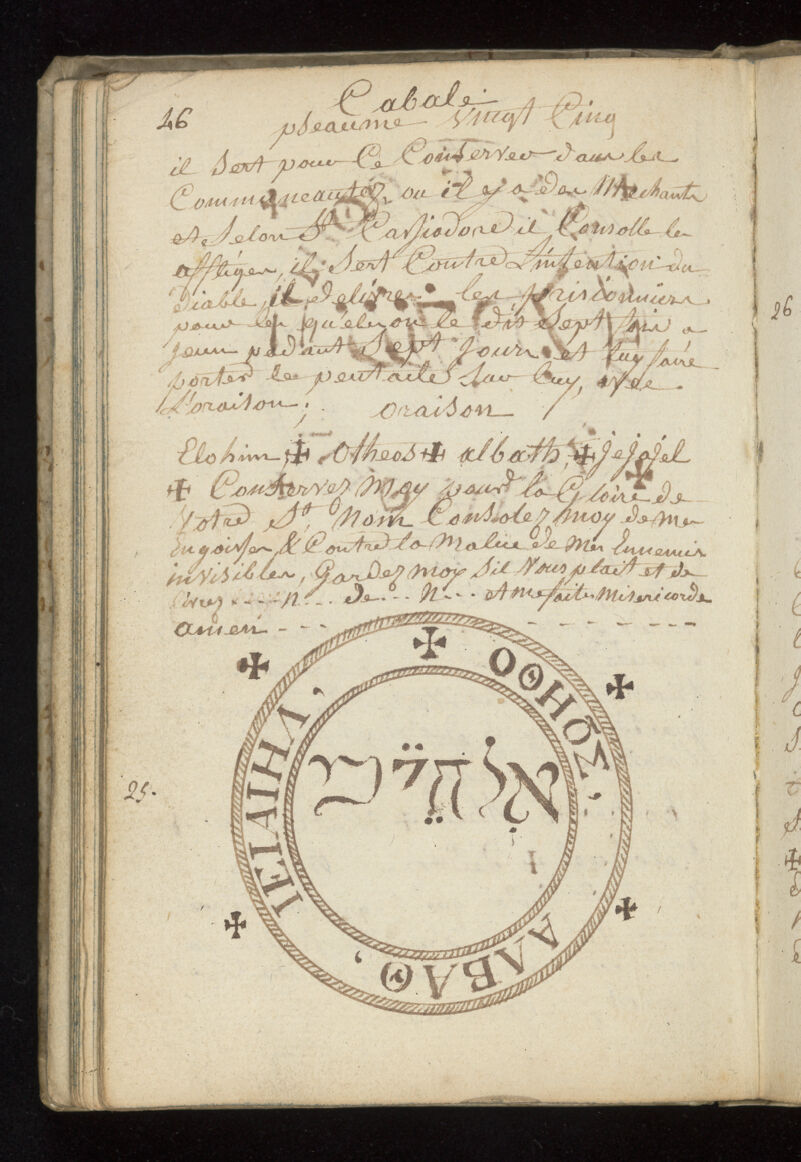 46
Cabale
pseaume vingt Cinq
il Sert pour Ce Conserver dans les
Communeautéz, ou il y a des Mechants
et Selon St. Cassiodore il Consolle les
affligez, il Sert Contre L'intention du
diable, il delivre les prisonniers
pour les quels on le dit Sept fois a
jeun pendant Sept jours et luy faire
porter le pentacle Sur luy, avec
L'oraison; oraison
Elohim, ✠ Otheos ✠ albath, ✠ jejajel
✠ Conservez Moy pour la Gloire de
Votre St. Nom Consolez moy de Mes
engoisses, & Contre la Malice de Mes Ennemis
invisibles, Gardez moy Sil Vous plait et de
livrez ---- n --- de --- N --- et me faite Misericorde
amen - - -
25.
ΟΘΗΟΣ,
ΑΛΒΑΘ,
ΙΕΙΑΙΗΛ,
אלהים
26